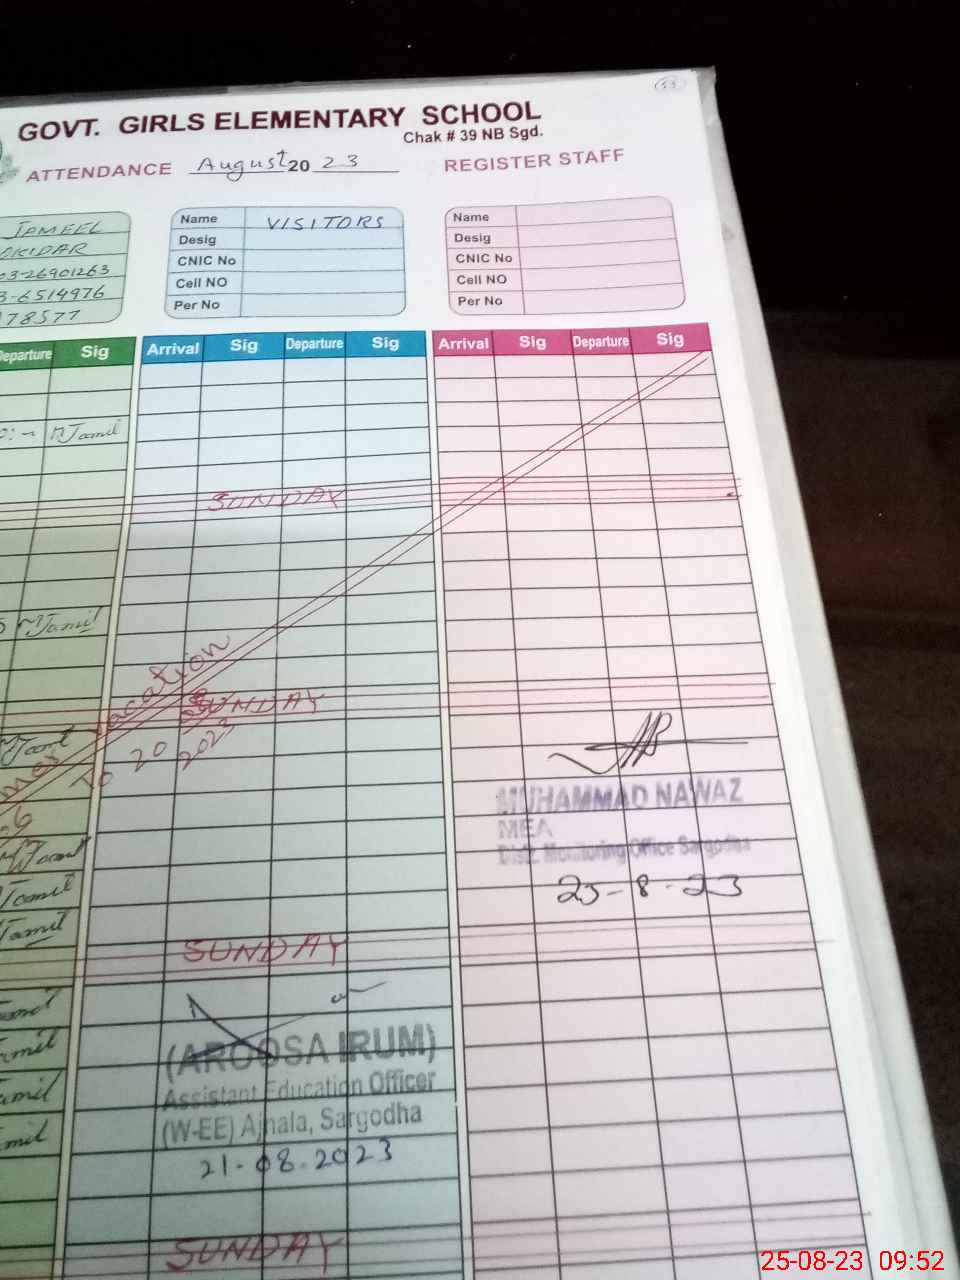 53
GOVT. GIRLS ELEMENTARY SCHOOL
Chak # 39 NB Sgd.
ATTENDANCE August 2023 REGISTER STAFF
JAMEEL
OKIDAR
03-26901263
3-6514976
78577
Name VISITORS
Desig
CNIC No
Cell NO
Per No
Name
Desig
CNIC No
Cell NO
Per No
Departure Sig
Arrival Sig Departure Sig
Arrival Sig Departure Sig
MJamil
SUNDAY
MJamil
vacation
SUNDAY
To 20
2023
MUHAMMAD NAWAZ
MEA
Distt. Monitoring Office Sargodha
25-8-23
Jamil
Jamil
SUNDAY
(AROOSA IRUM)
Assistant Education Officer
(W-EE) Ajnala, Sargodha
21.08.2023
SUNDAY
25-08-23 09:52